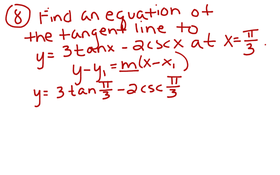 ⑧ Find an equation of
the tangent line to
y = 3 tan x - 2 csc x at x = π/3.
y - y₁ = m(x - x₁)
y = 3 tan π/3 - 2 csc π/3